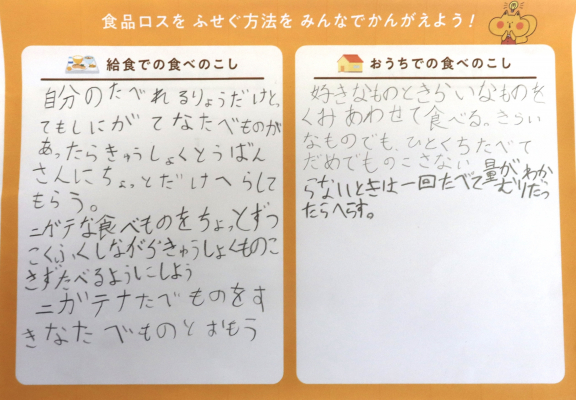 食品ロスを ふせぐ方法を みんなでかんがえよう！
給食での食べのこし
自分のたべれるりょうだけと、
てもしにがてなたべものが
あったらきゅうしょくとうばん
さんにちょっとだけへらして
もらう。
ニガテな食べものをちょっとずつ
こくふくしながらきゅうしょくものこ
さずたべるようにしよう
ニガテナたべものをす
きなたべものとおもう
おうちでの食べのこし
好きなものときらいなものを
くみあわせて食べる。きらい
なものでも、ひとくちたべて
だめでものこさない
量がわか
らないときは一回たべてむりだっ
たらへらす。